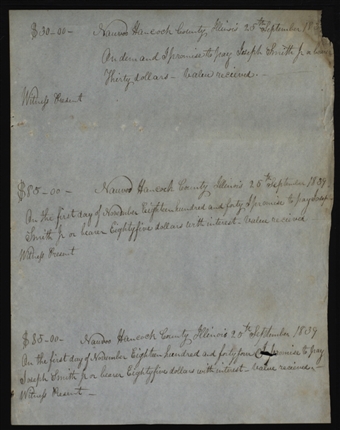 $30-00- Nauvoo Hancock County, Illinois 25th September 183
On demand I promise to pay Joseph Smith Jr or
Thirty dollars - Value recieved -
Witness Present
$85-00- Nauvoo Hancock County Illinois 25th September 1839
On the first day of November Eighteen hundred and forty I promise to pay Joseph
Smith Jr or bearer Eightyfive dollars with interest. Value recieved
Witness Present
$85-00- Nauvoo Hancock County, Illinois 25th September 1839
On the first day of November Eighteen hundred and forty four I promise to pay
Joseph Smith Jr or bearer Eightyfive dollars with interest - Value recieved -
Witness Present -